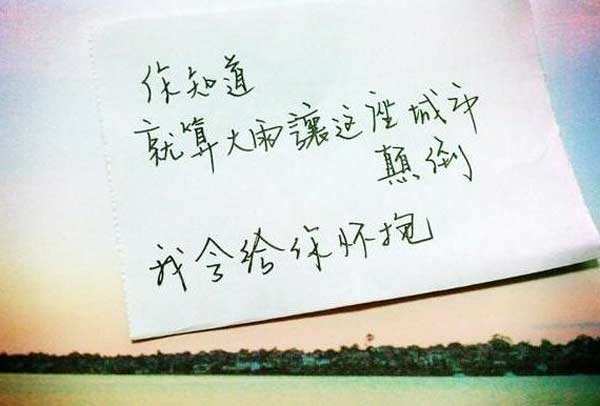 你知道
就算大雨讓这座城市
顛倒
我会给你怀抱